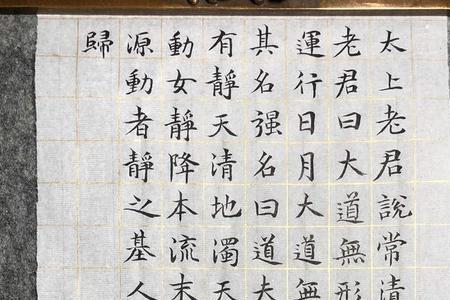 太上老君說常清
老君曰大道無形
運行日月大道無
其名强名曰道夫
有靜天清地濁天
動女靜降本流末
源動者靜之基人
歸